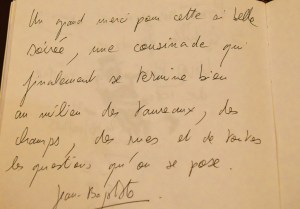 Un grand merci pour cette si belle
soirée, une cousinade qui
finalement se termine bien
au milieu des taureaux, des
champs, des rues et de toutes
les questions qu'on se pose.
Jean-Baptiste